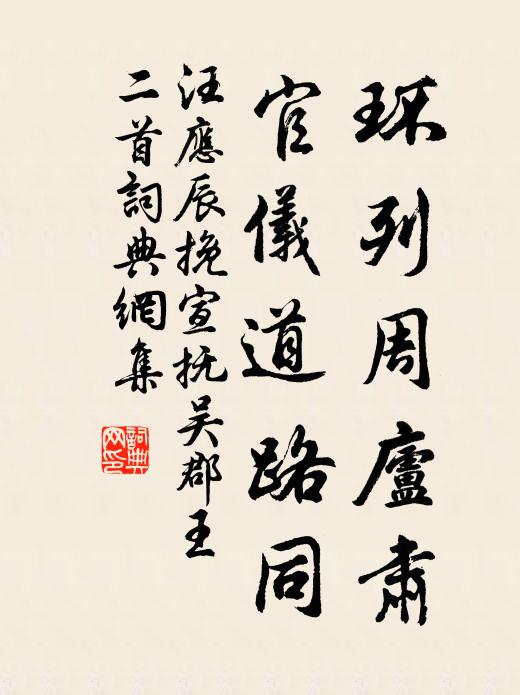 环列周廬肅
官儀道路同
汪應辰挽宣抚吴郡王
二首詞典網集
詞典
网印